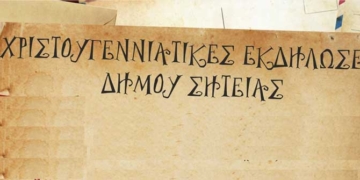 ΧΡΙΣΤΟΥΓΕΝΝΙΑΤΙΚΕΣ ΕΚΔΗΛΩΣΕ
ΔΗΜΟΥ ΣΗΤΕΙΑΣ